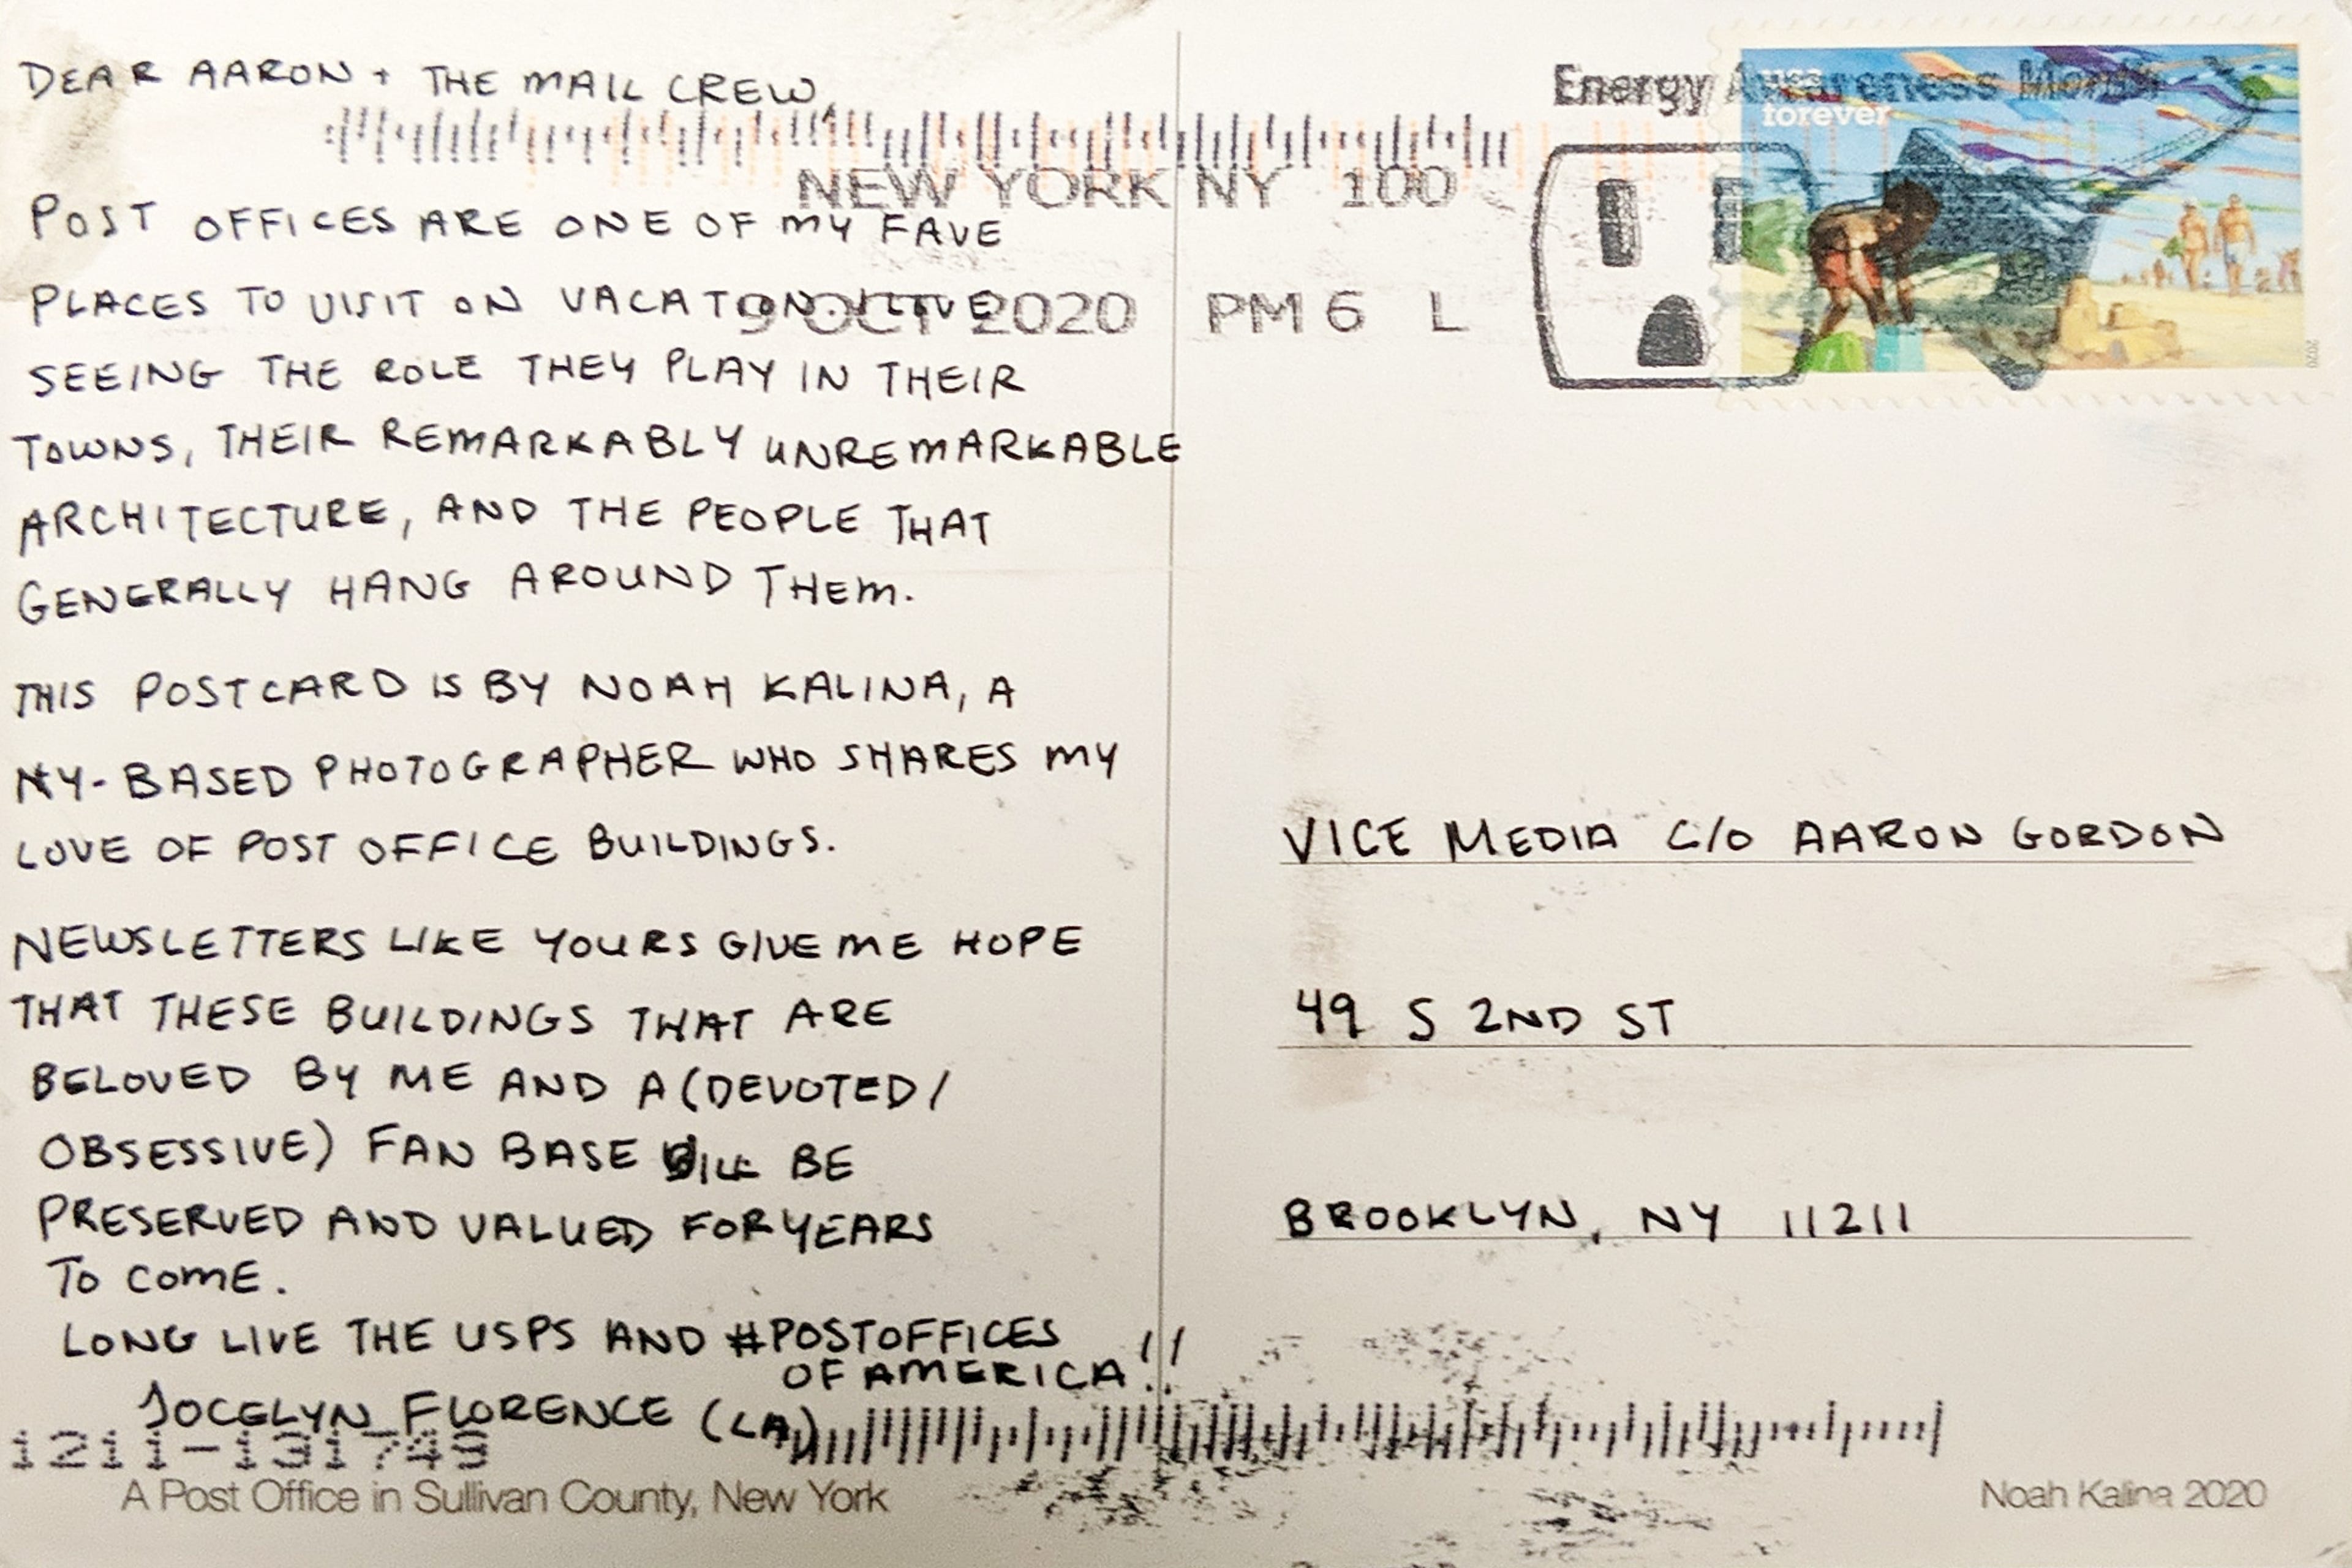 DEAR AARON + THE MAIL CREW,
POST OFFICES ARE ONE OF MY FAVE
PLACES TO VISIT ON VACATION. I LOVE
SEEING THE ROLE THEY PLAY IN THEIR
TOWNS, THEIR REMARKABLY UNREMARKABLE
ARCHITECTURE, AND THE PEOPLE THAT
GENERALLY HANG AROUND THEM.
THIS POSTCARD IS BY NOAH KALINA, A
NY-BASED PHOTOGRAPHER WHO SHARES MY
LOVE OF POST OFFICE BUILDINGS.
NEWSLETTERS LIKE YOURS GIVE ME HOPE
THAT THESE BUILDINGS THAT ARE
BELOVED BY ME AND A (DEVOTED/
OBSESSIVE) FAN BASE WILL BE
PRESERVED AND VALUED FOR YEARS
TO COME.
LONG LIVE THE USPS AND #POSTOFFICES
OFAMERICA!!
JOCELYN FLORENCE (LA)
1211-131749
A Post Office in Sullivan County, New York
NEW YORK NY 100
9 OCT 2020 PM 6 L
Energy Awareness Month
USA
forever
2020
VICE MEDIA C/O AARON GORDON
49 S 2ND ST
BROOKLYN, NY 11211
Noah Kalina 2020